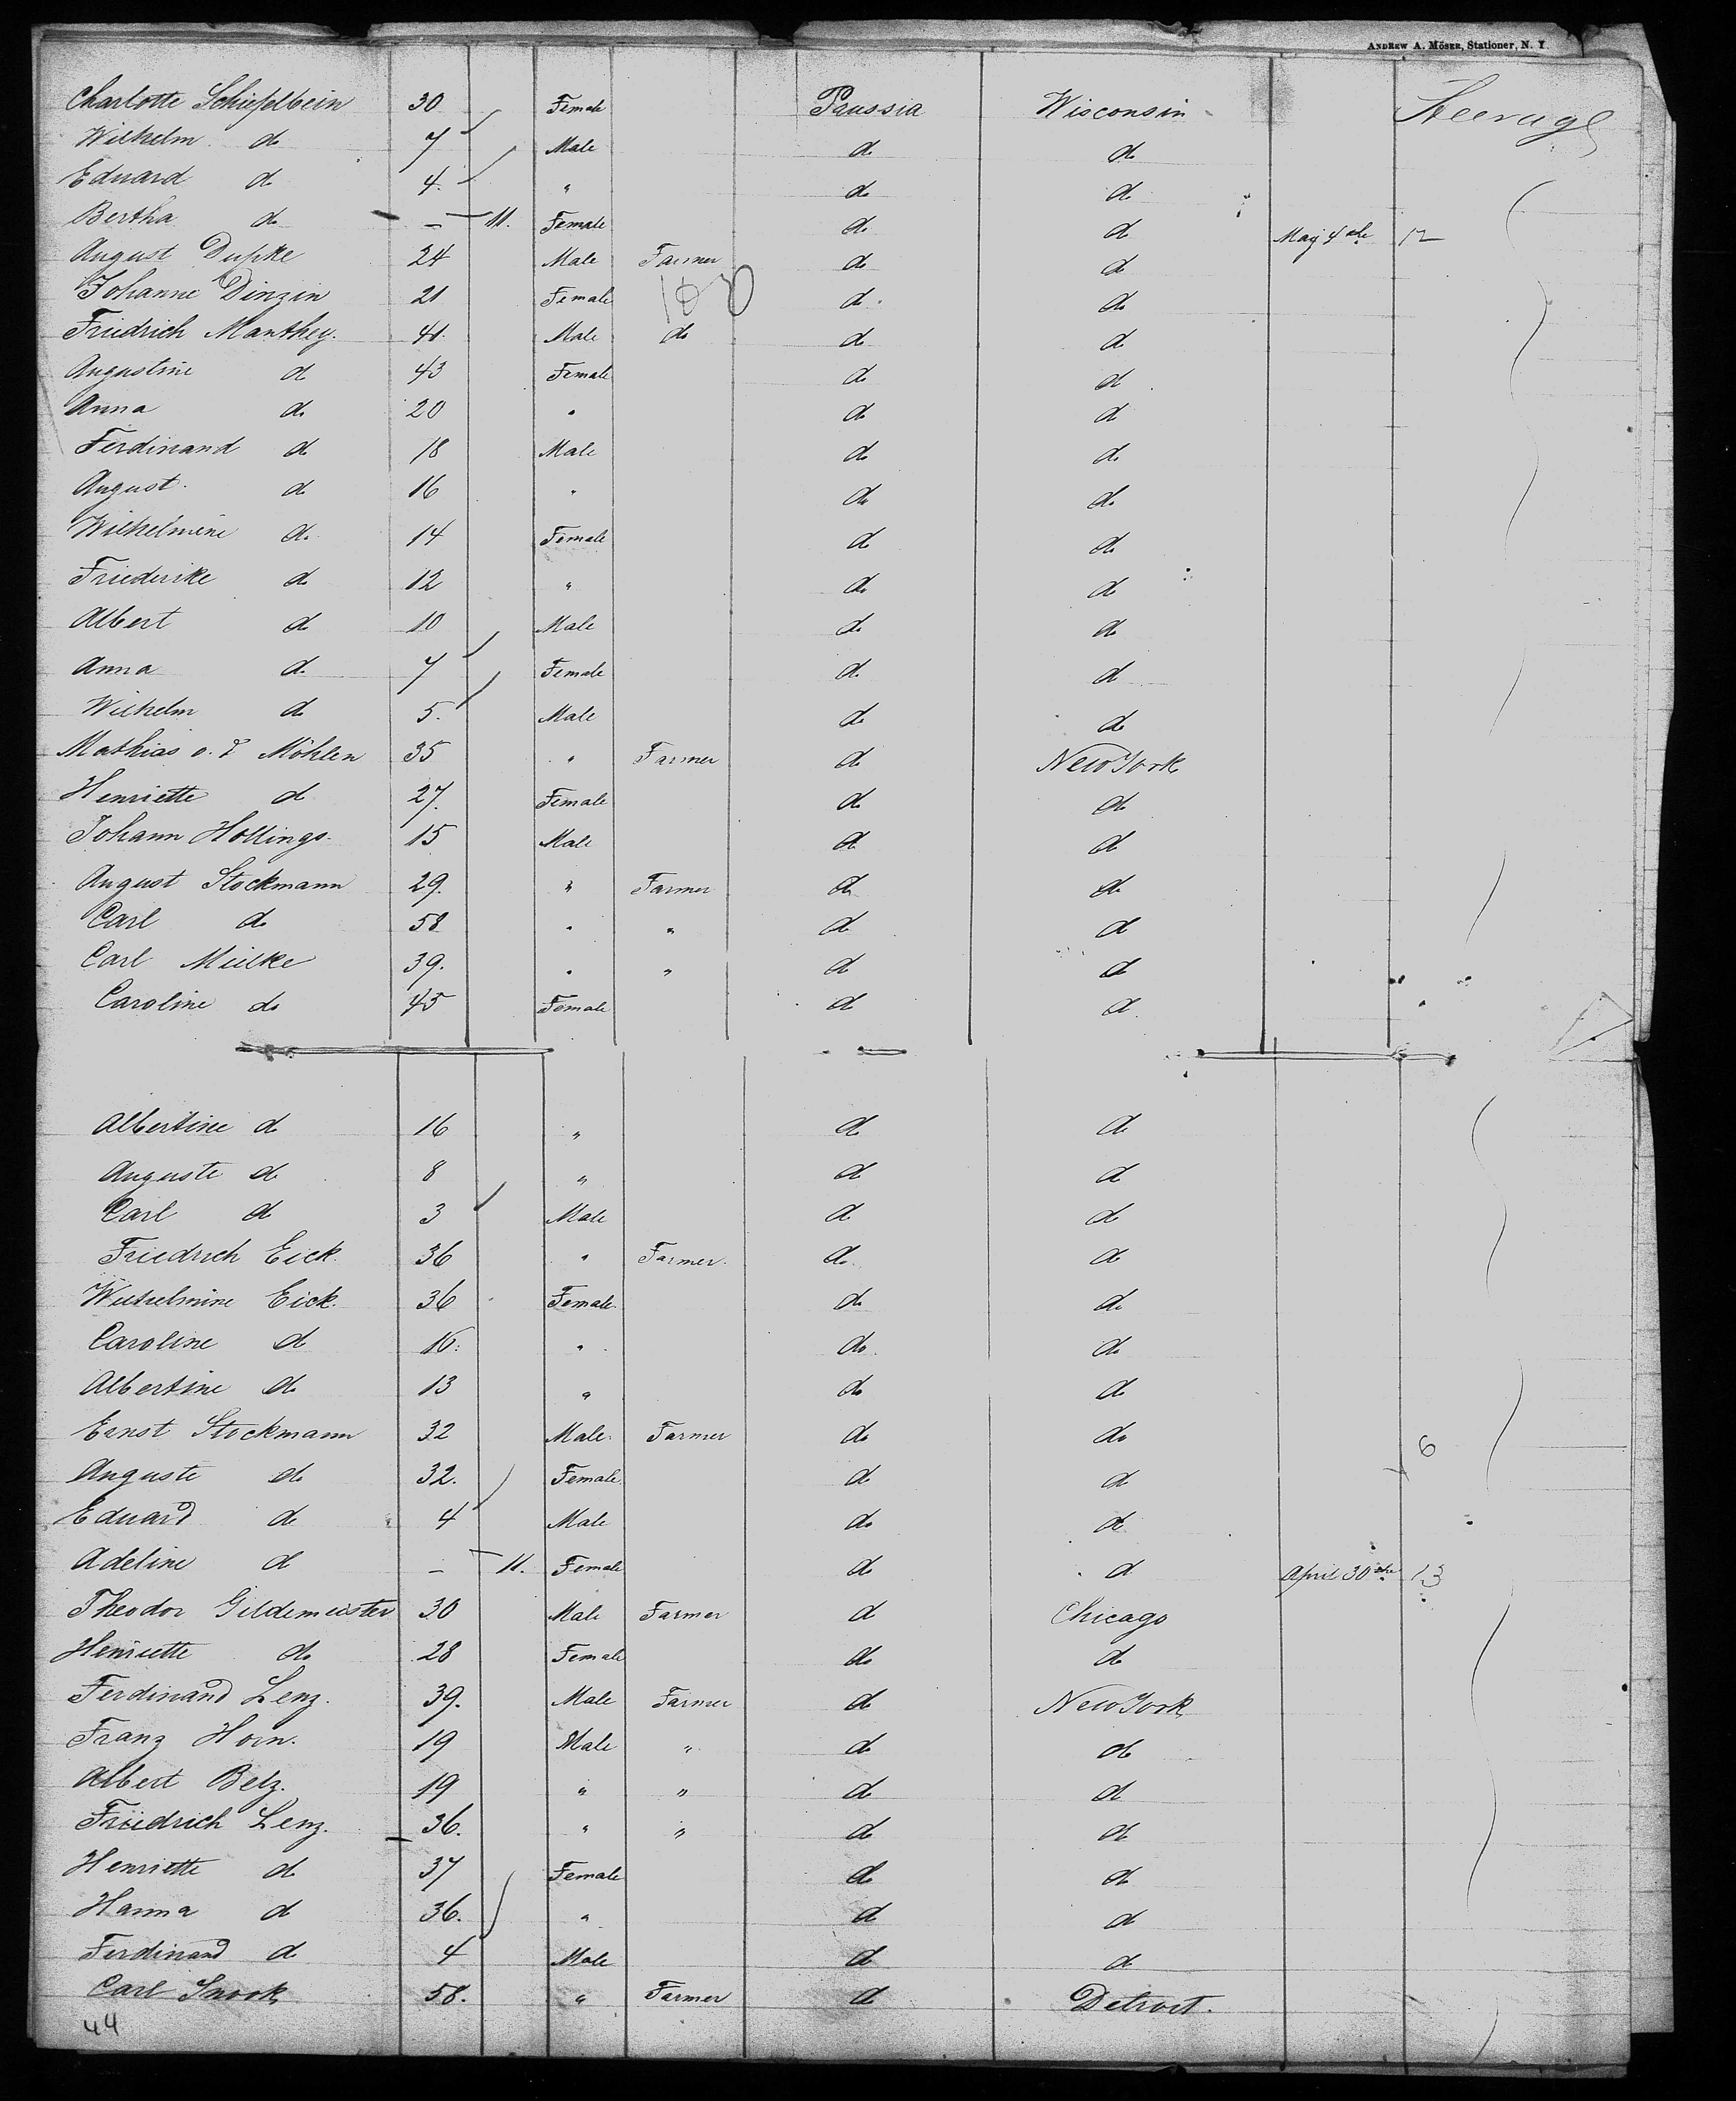 ANDREW A. MÖSER, Stationer, N. Y.
Charlotte Schiefelbein 30 Female Prussia Wisconsin Steerage
Wilhelm do 7 Male do do
Eduard do 4. " do do
Bertha do – 11. Female do do May 4th 12
August Dupke 24 Male Farmer do do
100
Johanne Dinzin 21 Female do do
Friedrich Manthey. 41. Male do do do
Augustine do 43 Female do do
Anna do 20 " do do
Ferdinand do 18 Male do do
August. do 16 " do do
Wilhelmine do 14 Female do do
Friederike do 12 " do do
Albert do 10 Male do do
Anna do 7 Female do do
Wilhelm do 5. Male do do
Mathias v. d Möhlen 35 " Farmer do New York
Henriette do 27. Female do do
Johann Hollings. 15 Male do do
August Stockmann 29. " Farmer do do
Carl do 58 " " do do
Carl Mielke 39. " " do do
Caroline do 45 Female do do
Albertine do 16 " do do
Auguste do 8 " do do
Carl do 3 Male do do
Friedrich Eick 36 " Farmer. do do
Wilhelmine Eick. 36 Female. do do
Caroline do 16. " do do
Albertine do 13 " do do
Ernst Stockmann 32 Male Farmer do do 6
Auguste do 32. Female. do do
Eduard do 4 Male do do
Adeline do – 11. Female do do April 30th 13
Theodor Gildemeister 30 Male Farmer do Chicago
Henriette do 28 Female do do
Ferdinand Lenz. 39. Male Farmer do New York
Franz Horn. 19 Male " do do
Albert Belz. 19 " " do do
Friedrich Lenz. 36. " " do do
Henriette do 37 Female do do
Hanna do 36. " do do
Ferdinand do 4 Male do do
Carl Snook 58. " Farmer do Detroit.
44